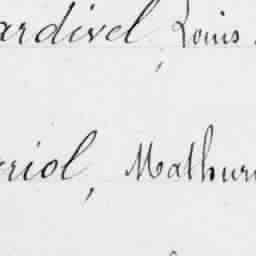 ardivel, Louis
riol, Mathuri